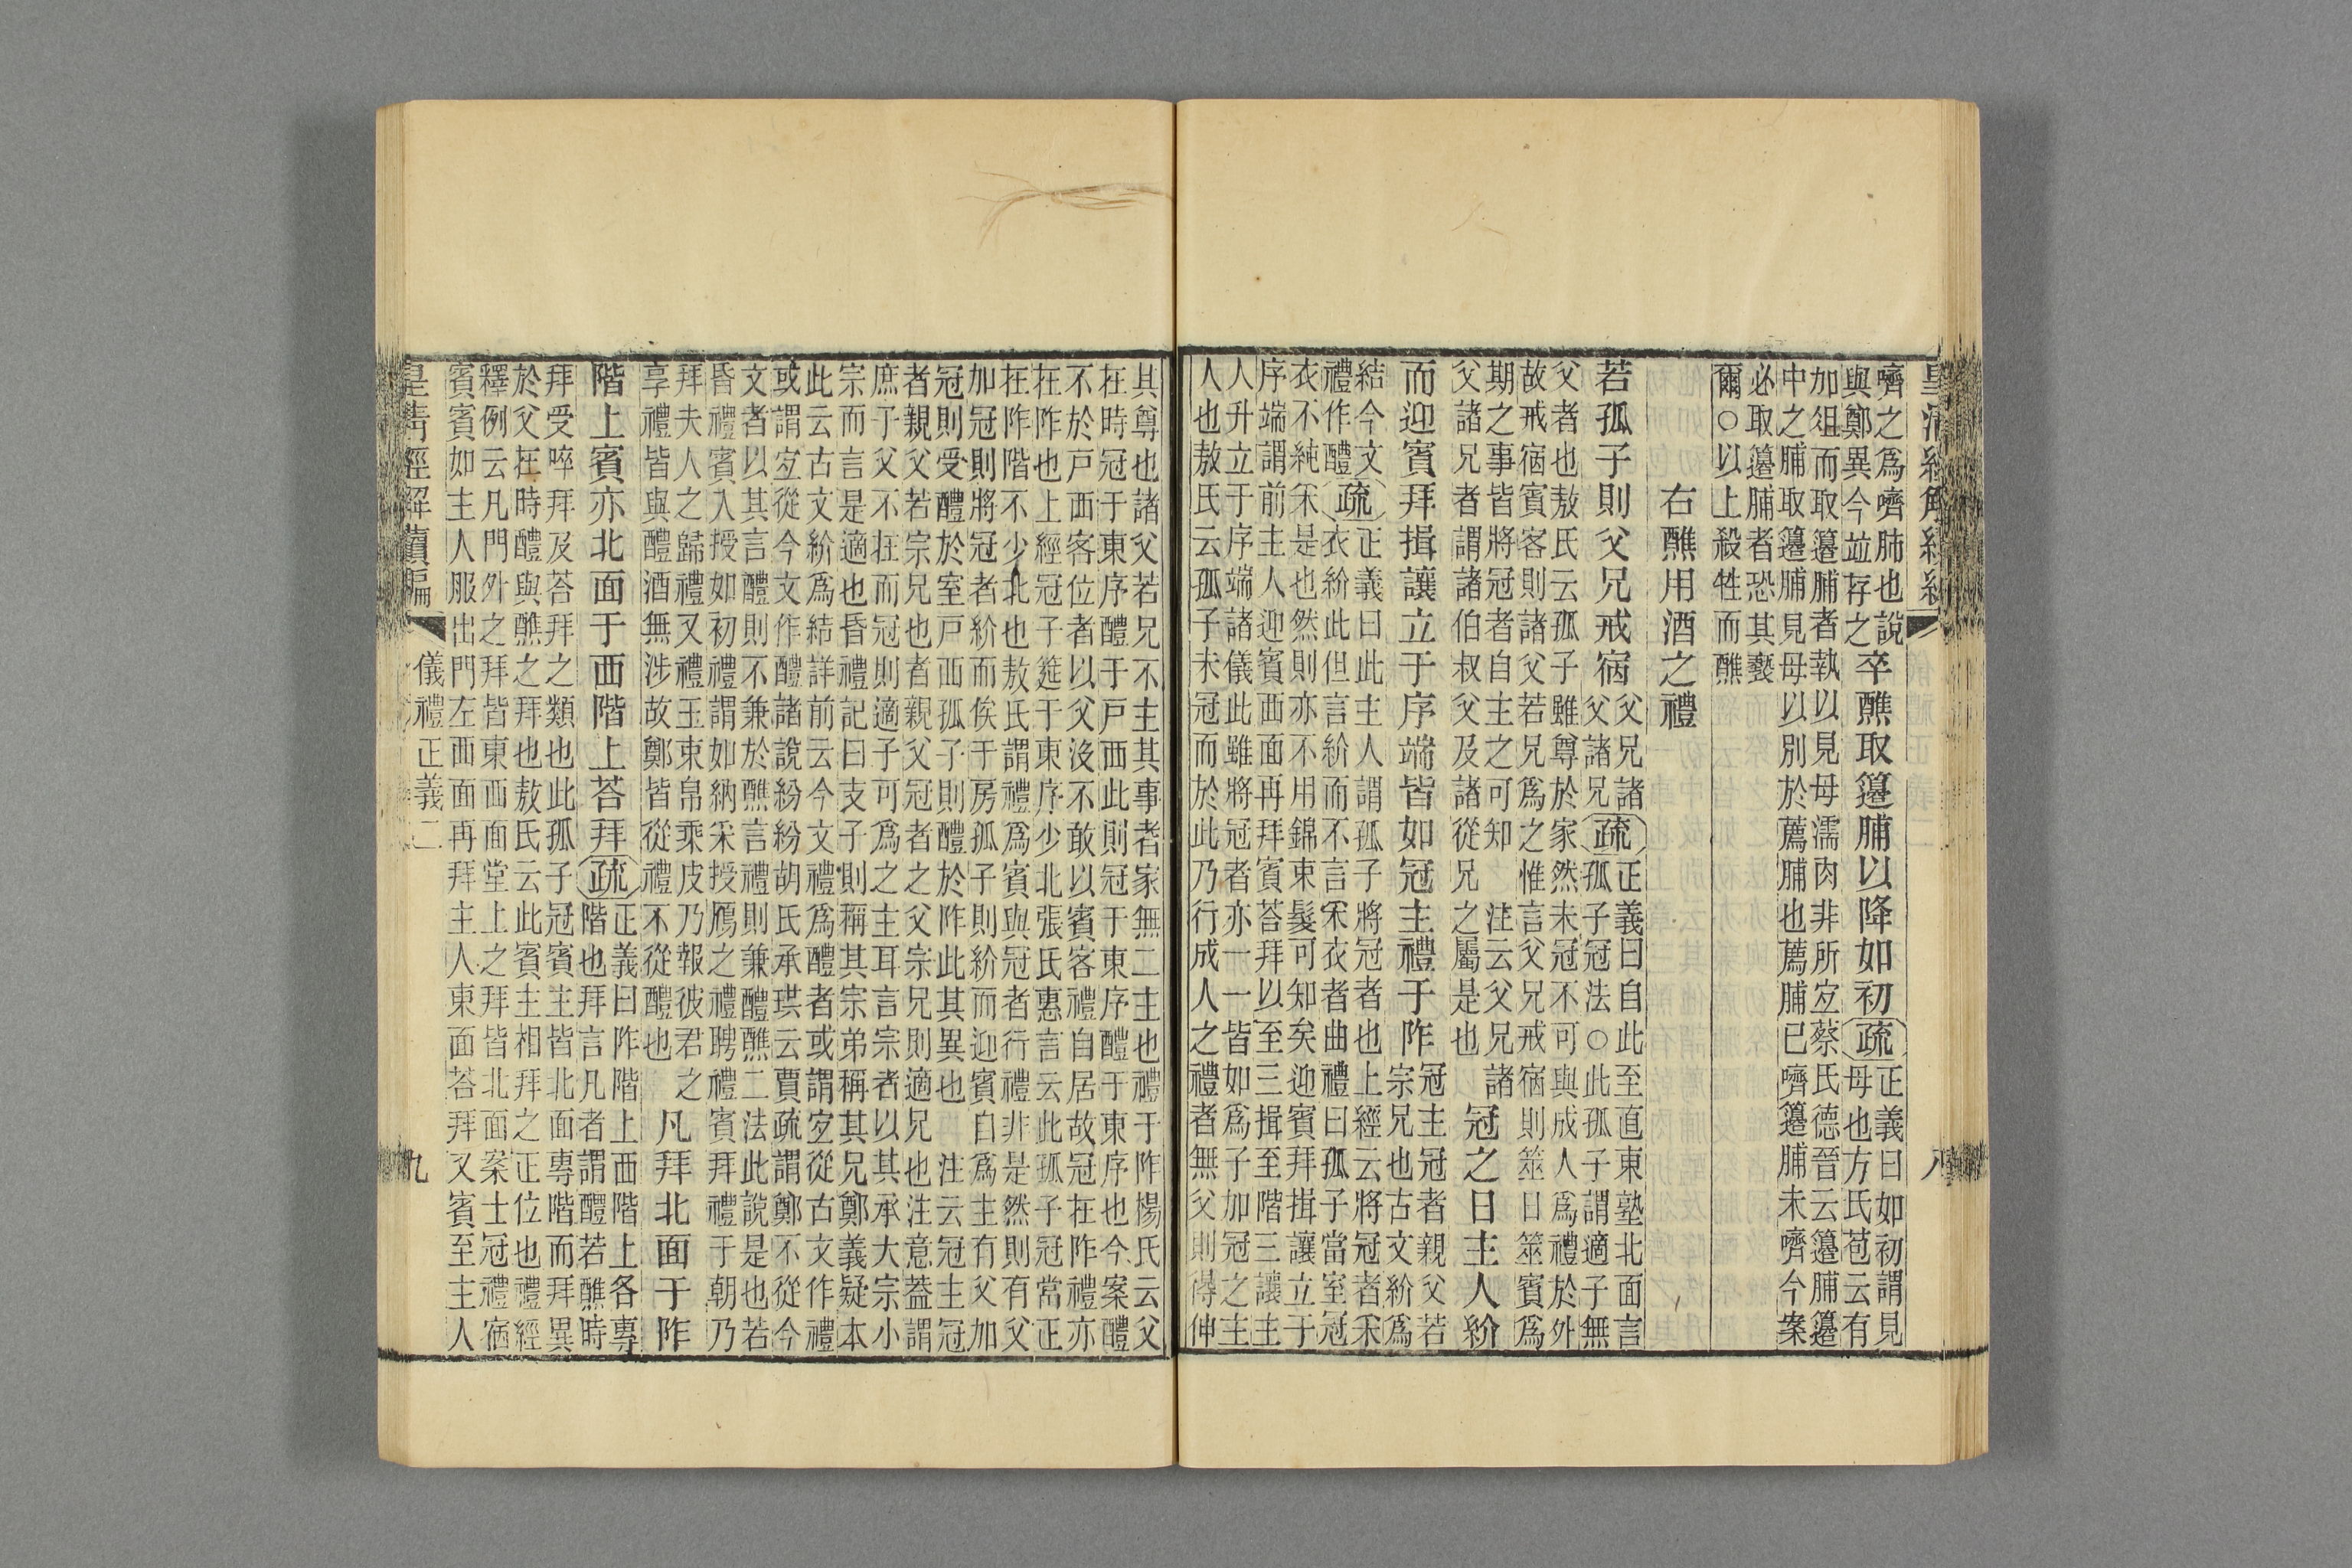 嚌之爲嚌肺也說
與鄭異今並存之
卒醮取籩脯以降如初
疏
正義曰如初謂見
母也方氏苞云有
加俎而取籩脯者執以見母濡肉非所宜蔡氏德晉云籩脯籩
中之脯取籩脯見母以別於薦脯也薦脯已嚌籩脯未嚌今案
必取籩脯者恐其褻
爾○以上殺牲而醮
右醮用酒之禮
若孤子則父兄戒宿
父兄諸
父諸兄
疏
正義曰自此至直東塾北面言
孤子冠法○此孤子謂適子無
父者也敖氏云孤子雖尊於家然未冠不可與成人爲禮於外
故戒宿賓客則諸父若兄爲之惟言父兄戒宿則筮日筮賓爲
期之事皆將冠者自主之可知　注云父兄諸
父諸兄者謂諸伯叔父及諸從兄之屬是也
冠之日主人紒
而迎賓拜揖讓立于序端皆如冠主禮于阼
冠主冠者親父若
宗兄也古文紒爲
結今文
禮作醴
疏
正義曰此主人謂孤子將冠者也上經云將冠者采
衣紒此但言紒而不言采衣者曲禮曰孤子當室冠
衣不純采是也然則亦不用錦束髮可知矣迎賓拜揖讓立于
序端謂前主人迎賓西面再拜賓荅拜以至三揖至階三讓主
人升立于序端諸儀此雖將冠者亦一一皆如爲子加冠之主
人也敖氏云孤子未冠而於此乃行成人之禮者無父則得伸
其尊也諸父若兄不主其事者家無二主也禮于阼楊氏云父
在時冠于東序醴于戶西此則冠于東序醴于東序也今案醴
不於戶西客位者以父沒不敢以賓客禮自居故冠在阼禮亦
在阼也上經冠子筵于東序少北張氏惠言云此孤子冠當正
在阼階不少北也敖氏謂禮爲賓與冠者行禮非是然則有父
加冠則將冠者紒而俟于房孤子則紒而迎賓自爲主有父加
冠則受醴於室戶西孤子則醴於阼此其異也　注云冠主冠
者親父若宗兄也者親父冠者之父宗兄則適兄也注意蓋謂
庶子父不在而冠則適子可爲之主耳言宗者以其承大宗小
宗而言是適也昏禮記曰支子則稱其宗弟稱其兄鄭義疑本
此云古文紒爲結詳前云今文禮爲醴者或謂宜從古文作禮
或謂宜從今文作醴諸說紛紛胡氏承珙云賈疏謂鄭不從今
文者以其言醴則不兼於醮言禮則兼醴醮二法此說是也若
昏禮賓入授如初禮謂如納采授鴈之禮聘禮賓拜禮于朝乃
拜夫人之歸禮又禮玉束帛乘皮乃報彼君之
享禮皆與醴酒無涉故鄭皆從禮不從醴也
凡拜北面于阼
階上賓亦北面于西階上荅拜
疏
正義曰阼階上西階上各專
階也拜言凡者謂醴若醮時
拜受啐拜及荅拜之類也此孤子冠賓主皆北面專階而拜異
於父在時醴與醮之拜也敖氏云此賓主相拜之正位也禮經
釋例云凡門外之拜皆東西面堂上之拜皆北面案士冠禮宿
賓賓如主人服出門左西面再拜主人東面荅拜又賓至主人
皇清經解續編
儀禮正義二
九